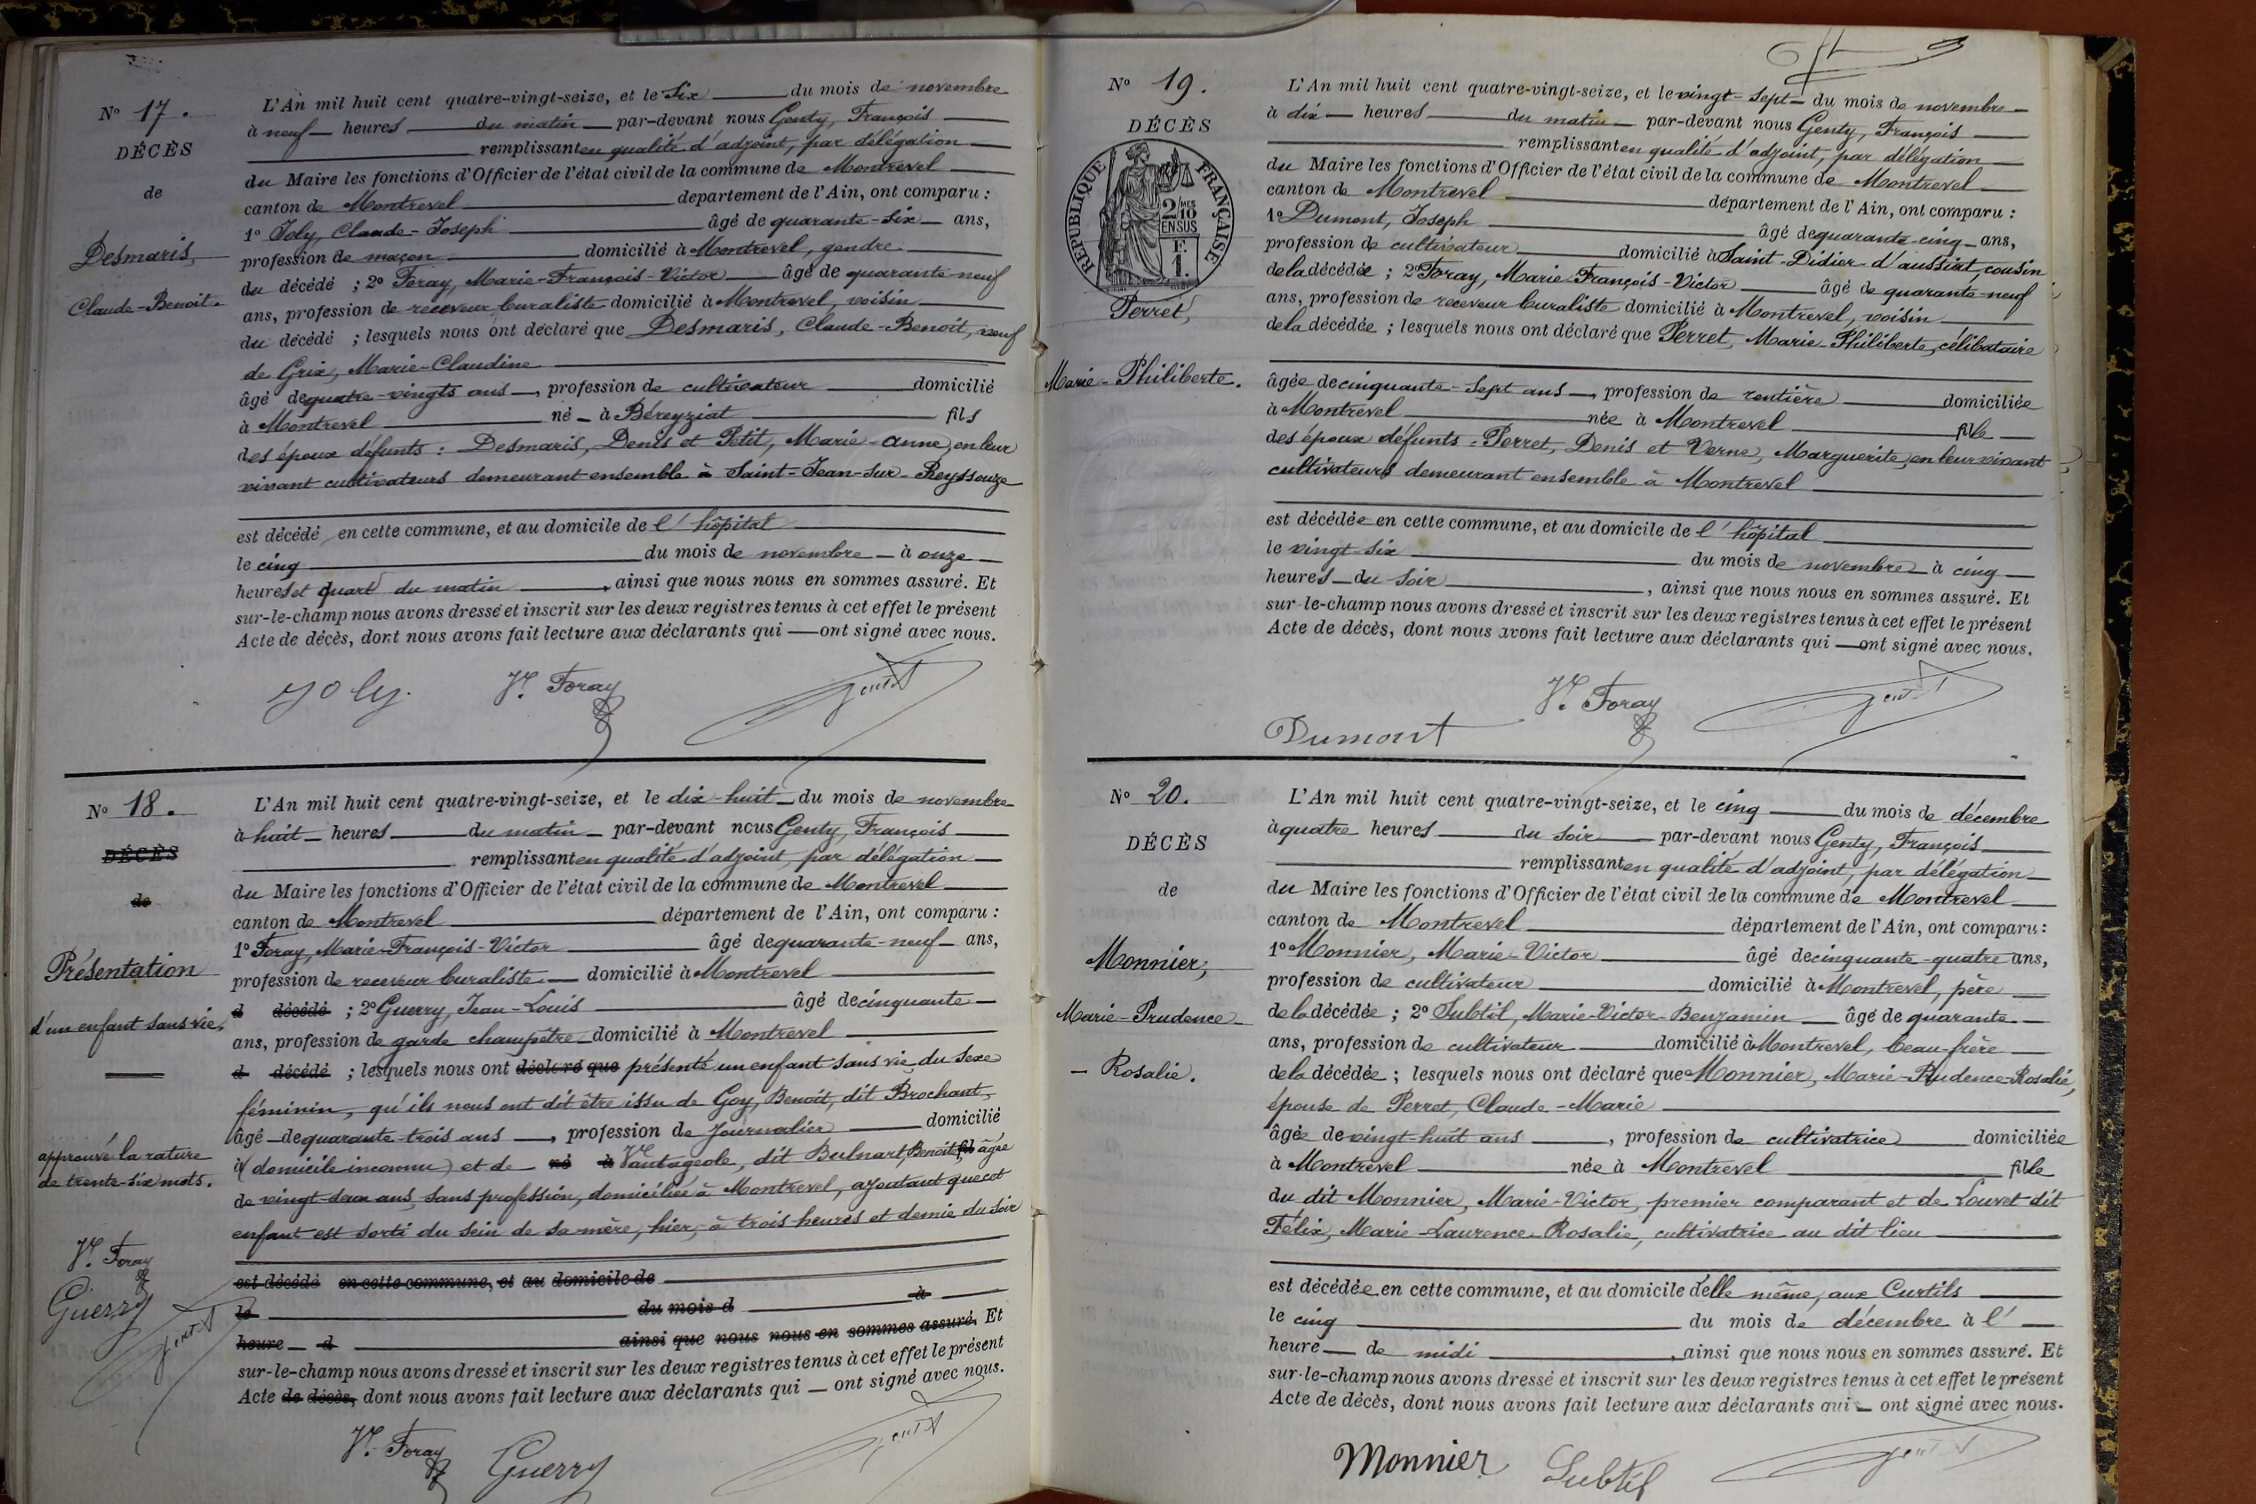 N° 17.
DÉCÈS
de
Desmaris,
Claude-Benoit.
L'An mil huit cent quatre-vingt-seize, et le Six du mois de novembre
à neuf heures du matin par-devant nous Genty, François
remplissant en qualité d'adjoint, par délégation
du Maire les fonctions d'Officier de l'état civil de la commune de Montrevel
canton de Montrevel département de l'Ain, ont comparu :
1° Joly, Claude-Joseph âgé de quarante-six ans,
profession de maçon domicilié à Montrevel, gendre
du décédé ; 2° Foray, Marie-François-Victor âgé de quarante neuf
ans, profession de receveur buraliste domicilié à Montrevel, voisin
du décédé ; lesquels nous ont déclaré que Desmaris, Claude-Benoit, veuf
de Grix, Marie-Claudine
âgé de quatre-vingts ans, profession de cultivateur domicilié
à Montrevel né à Béreyziat fils
des époux défunts : Desmaris, Denis et Petit, Marie-Anne, en leur
vivant cultivateurs demeurant ensemble à Saint-Jean-sur-Reyssouze
est décédé en cette commune, et au domicile de l'hôpital
le cinq du mois de novembre à onze
heures et quart du matin, ainsi que nous nous en sommes assuré. Et
sur-le-champ nous avons dressé et inscrit sur les deux registres tenus à cet effet le présent
Acte de décès, dont nous avons fait lecture aux déclarants qui ont signé avec nous.
Joly. Vr. Foray Genty
N° 18.
DÉCÈS
de
Présentation
d'un enfant sans vie,
approuvé la rature
de trente-six mots.
Vr. Foray
Guerry
Genty
L'An mil huit cent quatre-vingt-seize, et le dix-huit du mois de novembre
à huit heures du matin par-devant nous Genty, François
remplissant en qualité d'adjoint, par délégation
du Maire les fonctions d'Officier de l'état civil de la commune de Montrevel
canton de Montrevel département de l'Ain, ont comparu :
1° Foray, Marie-François-Victor âgé de quarante-neuf ans,
profession de receveur buraliste domicilié à Montrevel
d décédé ; 2° Guerry, Jean-Louis âgé de cinquante
ans, profession de garde champêtre domicilié à Montrevel
d décédé ; lesquels nous ont déclaré que présenté un enfant sans vie du sexe
féminin, qu'ils nous ont dit être issu de Goy, Benoit, dit Brochant,
âgé de quarante-trois ans, profession de journalier domicilié
à (domicile inconnu) et de né à Vantageole, dit Bulnart, Benoite, âgée
de vingt-deux ans, sans profession, domiciliée à Montrevel, ajoutant que cet
enfant est sorti du sein de sa mère, hier, à trois heures et demie du soir
est décédé en cette commune, et au domicile de
le du mois d à
heure d ainsi que nous nous en sommes assuré. Et
sur-le-champ nous avons dressé et inscrit sur les deux registres tenus à cet effet le présent
Acte de décès, dont nous avons fait lecture aux déclarants qui ont signé avec nous.
Vr. Foray Guerry Genty
N° 19.
DÉCÈS
RÉPUBLIQUE FRANÇAISE
2/10 MES
EN SUS
F.
1.
Perret,
Marie-Philiberte.
L'An mil huit cent quatre-vingt-seize, et le vingt-sept du mois de novembre
à dix heures du matin par-devant nous Genty, François
remplissant en qualité d'adjoint, par délégation
du Maire les fonctions d'Officier de l'état civil de la commune de Montrevel
canton de Montrevel département de l'Ain, ont comparu :
1° Dumont, Joseph âgé de quarante-cinq ans,
profession de cultivateur domicilié à Saint-Didier-d'aussiat, cousin
de la décédée ; 2° Foray, Marie-François-Victor âgé de quarante-neuf
ans, profession de receveur buraliste domicilié à Montrevel, voisin
de la décédée ; lesquels nous ont déclaré que Perret, Marie-Philiberte, célibataire
âgée de cinquante-sept ans, profession de rentière domiciliée
à Montrevel née à Montrevel fille
des époux défunts : Perret, Denis et Verne, Marguerite, en leur vivant
cultivateurs demeurant ensemble à Montrevel
est décédée en cette commune, et au domicile de l'hôpital
le vingt-six du mois de novembre à cinq
heures du soir, ainsi que nous nous en sommes assuré. Et
sur-le-champ nous avons dressé et inscrit sur les deux registres tenus à cet effet le présent
Acte de décès, dont nous avons fait lecture aux déclarants qui ont signé avec nous.
Dumont Vr. Foray Genty
N° 20.
DÉCÈS
de
Monnier,
Marie-Prudence
-Rosalie.
L'An mil huit cent quatre-vingt-seize, et le cinq du mois de décembre
à quatre heures du soir par-devant nous Genty, François
remplissant en qualité d'adjoint, par délégation
du Maire les fonctions d'Officier de l'état civil de la commune de Montrevel
canton de Montrevel département de l'Ain, ont comparu :
1° Monnier, Marie-Victor âgé de cinquante-quatre ans,
profession de cultivateur domicilié à Montrevel, père
de la décédée ; 2° Subtil, Marie-Victor-Benjamin âgé de quarante
ans, profession de cultivateur domicilié à Montrevel, beau-frère
de la décédée ; lesquels nous ont déclaré que Monnier, Marie-Prudence-Rosalie,
épouse de Perret, Claude-Marie
âgée de vingt-huit ans, profession de cultivatrice domiciliée
à Montrevel née à Montrevel fille
du dit Monnier, Marie-Victor, premier comparant et de Louvet dit
Félix, Marie-Laurence-Rosalie, cultivatrice au dit lieu
est décédée en cette commune, et au domicile d'elle même, aux Curtils
le cinq du mois de décembre à l'
heure de midi, ainsi que nous nous en sommes assuré. Et
sur-le-champ nous avons dressé et inscrit sur les deux registres tenus à cet effet le présent
Acte de décès, dont nous avons fait lecture aux déclarants qui ont signé avec nous.
Monnier Subtil Genty